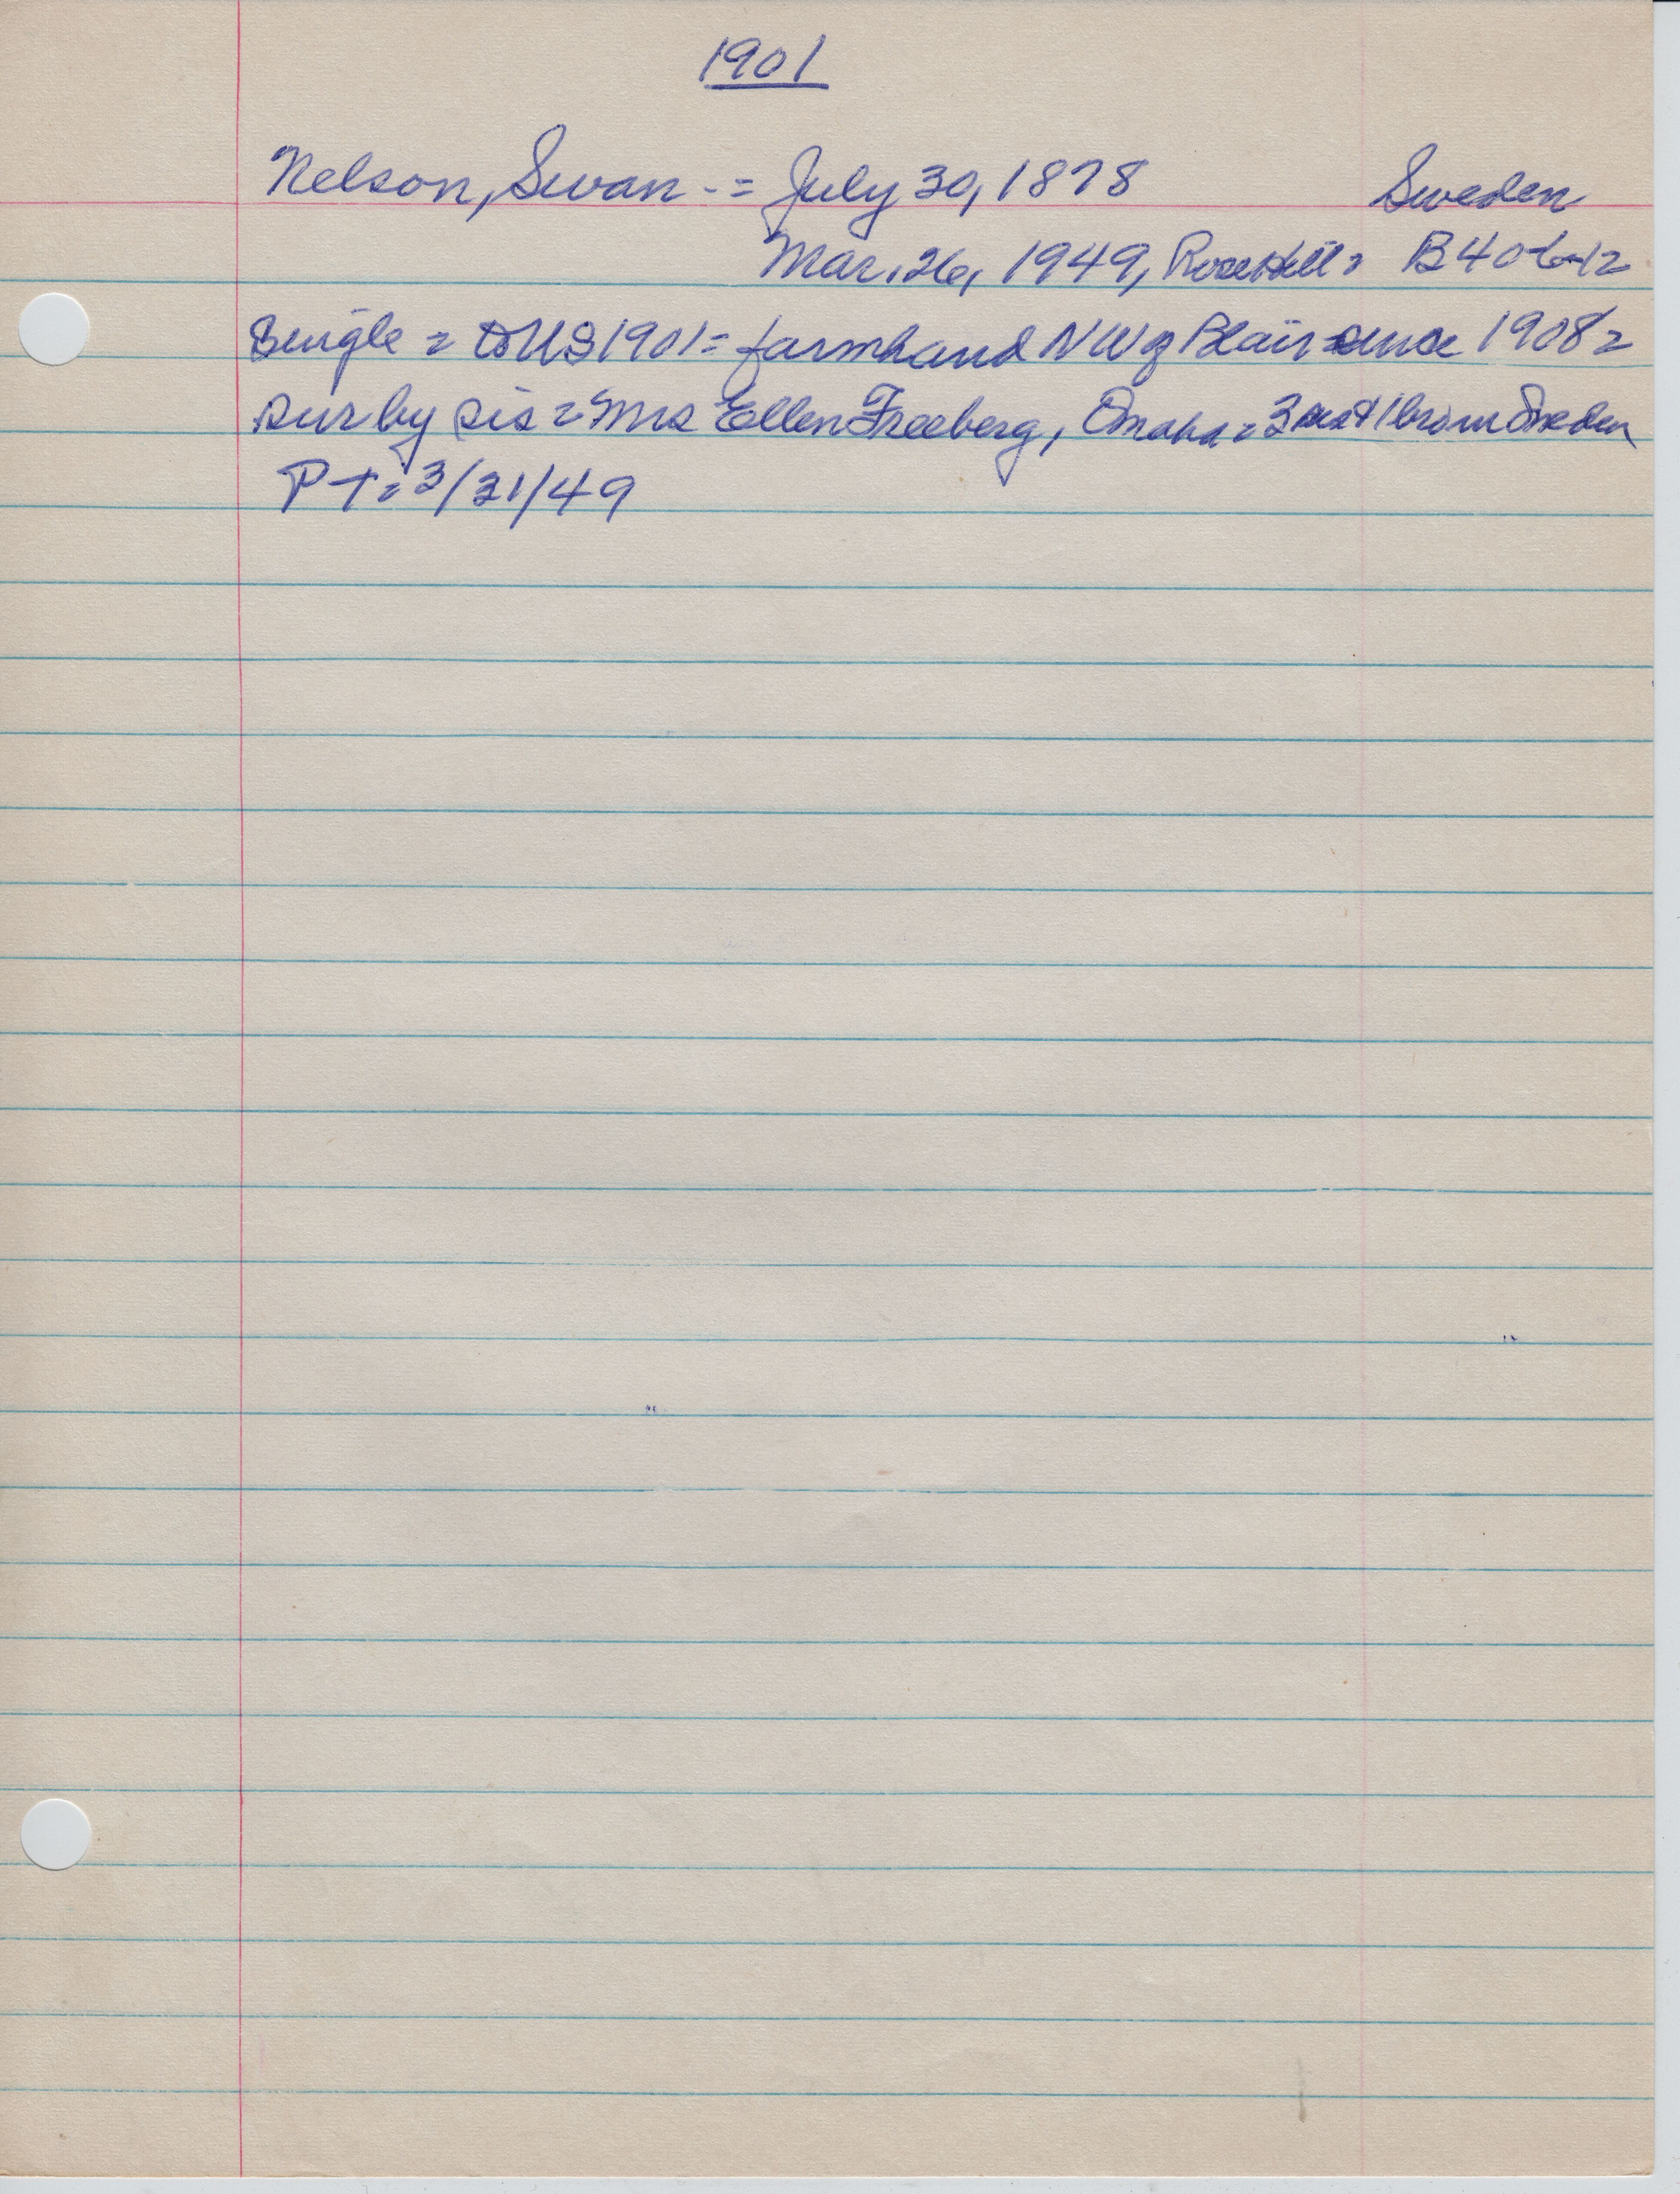 1901
Nelson, Swan -= July 30, 1878 Sweden
Mar. 26, 1949, Rose Hill = B40-6-12
Single = to US 1901 = farmhand NW of Blair since 1908 =
sur by sis = Mrs Ellen Freeberg, Omaha = 3 sis & 1 bro in Sweden
PT = 3/31/49